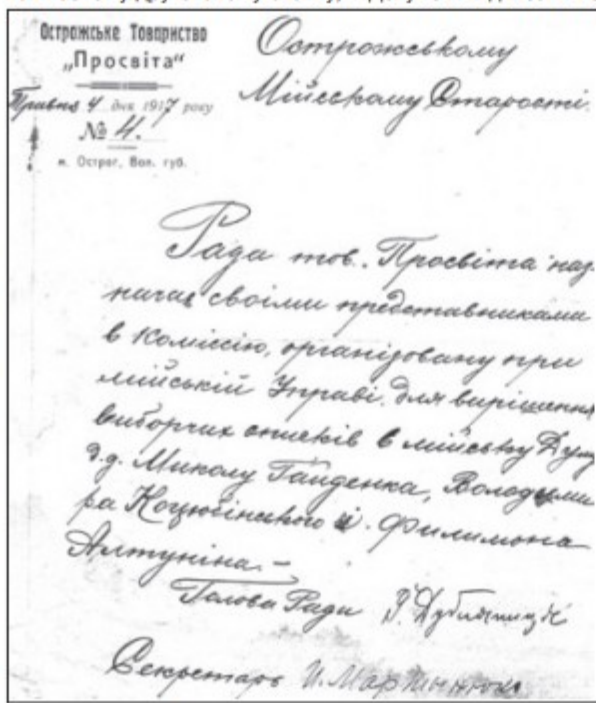 Острожське Товариство
„Просвіта“
Травня 4 дня 1917 року
№ 4.
м. Острог, Вол. губ.
Острожському
Мійському Старості.
Рада тов. Просвіта наз-
начає своіми представниками
в Коміссію, організовану при
мійській Управі для вирішення
виборчих списків в мійську Думу
д.д. Миколу Гайденка, Володими
ра Коцюбінського й Филимона
Алтуніна.–
Голова Ради
Секретарь И. Мартынюк